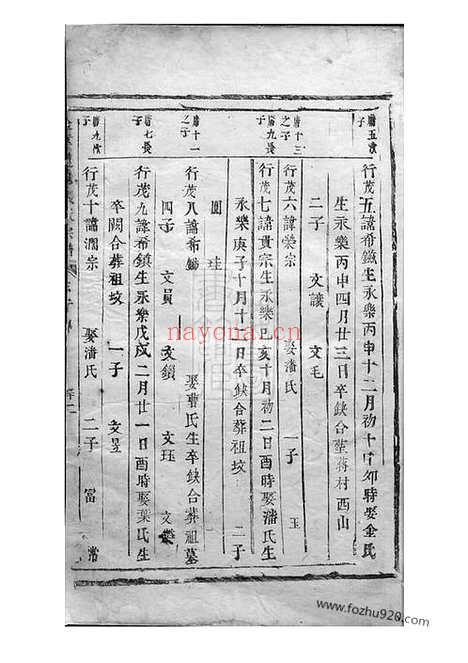 膳五次子
行茂五諱希鐵生永樂丙申十二月初十日卯時娶金氏
生永樂丙申四月廿三日卒缺合塟蒋村西山
二子 文讓 文毛
膳十三之子
行茂六諱榮宗 娶潘氏 一子 玉
膳九長子
行茂七諱貴宗生永樂己亥十月初二日酉時娶潘氏生
永樂庚子十月十一日卒缺合葬祖坟 二子
圓 珪
膳十一之子
行茂八諱希 娶曹氏生卒缺合葬祖墓
四子 文員 文鎖 文珏 文
膳七長子
行茂九諱希鎮生永樂戊戌二月廿一日酉時娶葉氏生
卒闕合葬祖坟 一子 文昱
膳九次子
行茂十諱潤宗 娶潘氏 二子 富 常
nayona.cn
www.fozhu920.com